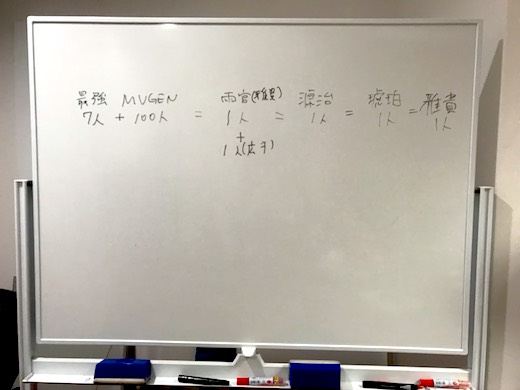 最強 MUGEN 雨宮(雅貴) 源治 琥珀 雅貴
7人 + 100人 = 1人 = 1人 = 1人 = 1人
+
1人(広斗)